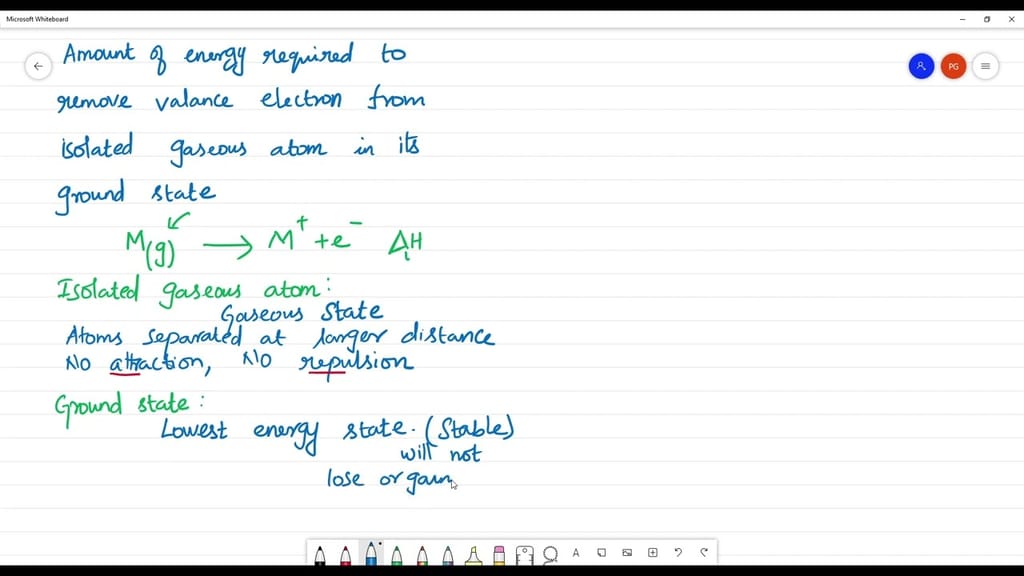 Microsoft Whiteboard
Amount of energy required to
PG
remove valance electron from
isolated gaseous atom in its
ground state
M(g) → M⁺ + e⁻ ΔᵢH
Isolated gaseous atom:
Gaseous State
Atoms separated at larger distance
No attraction, No repulsion
Ground state:
Lowest energy state. (Stable)
will not
lose or gain
A